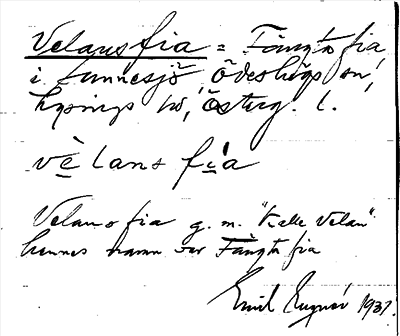 Velans fia = Fångta fia
i Sunnesjö, Ödeshögs sn,
Lysings hd, Österg. l.
vè̱lans fi̱a
Velans fia g. m. "Kalle Velan"
hennes namn var Fångta fia
Emil 1937.